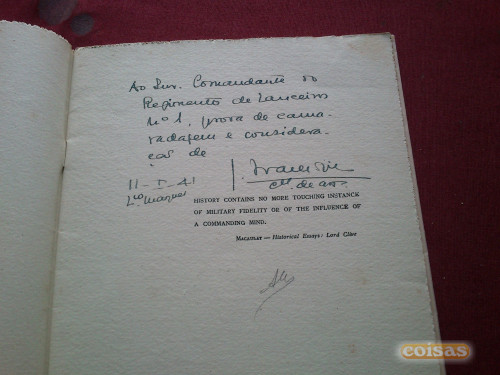 Ao Snr. Comandante do
Regimento de Lanceiros
nº 1, prova de cama-
radagem e considera-
ção de
II-I-41
Lço Marques
HISTORY CONTAINS NO MORE TOUCHING INSTANCE
OF MILITARY FIDELITY OR OF THE INFLUENCE OF
A COMMANDING MIND.
MACAULAY — Historical Essays: Lord Clive
coisas